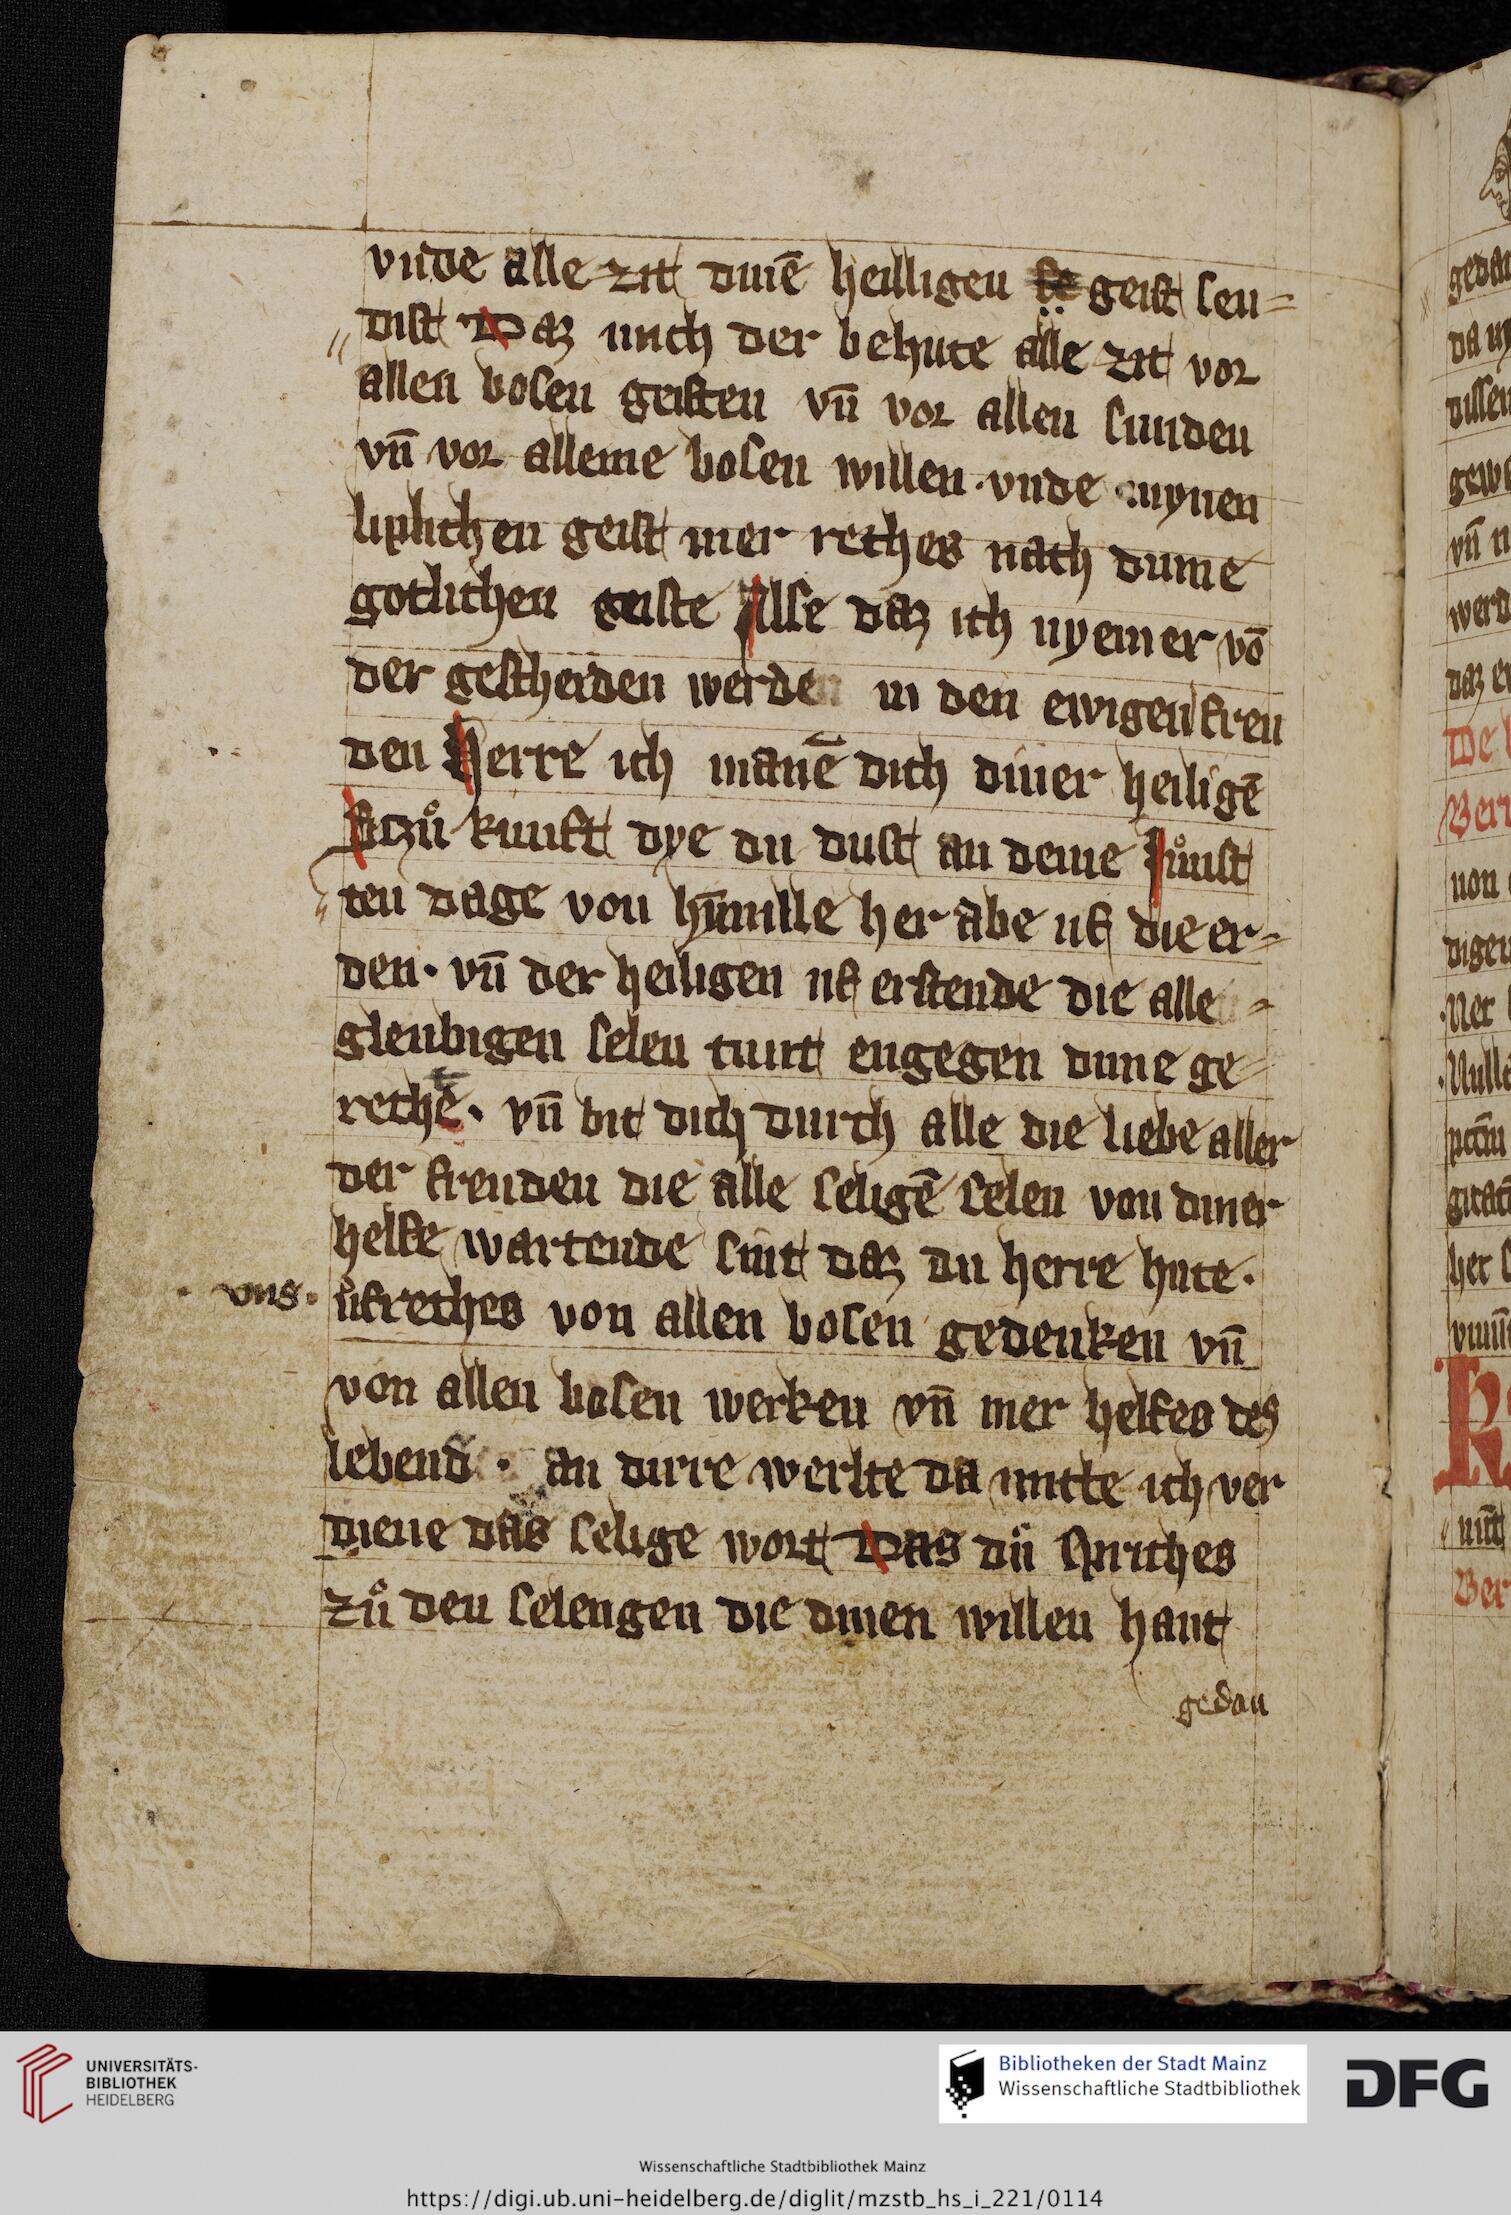 vnde alle zit dinē heilligen geist sen=
dist Daz mich der behute alle zit vor
allen bosen geisten vn̄ vor allen sunden
vn̄ vor alleme bosen willen · vnde mynen
liplichen geist mer rethes nach dinme
gotlichen geiste Alse daz ich nyemer vō
der gescheiden werde in den ewigen freu
den Herre ich manē dich diner heiligē
zuͦ kunft dye du dust an deme Juͦnst
ten dage von hȳmille her abe uf die er=
den · vn̄ der heiligen uf erstende die alle =
gleubigen selen tunt engegen dime ge=
rethē · vn̄ bit dich durch alle die liebe aller
der freuden die alle seligē selen von diner
helfe wartende sint daz du herre hute ·
vns · uͦfrethes von allen bosen gedenken vn̄
von allen bosen werken vn̄ mer helfes des
lebend · an dirre werlte da mitte ich ver
diene das selige wort Das du sprithes
zuͦ den selengen die dinen willen hant
gedan
gedan
da
werd
daz
non
digen
·Ner
·Nulle
her
Ber
UNIVERSITÄTS-
BIBLIOTHEK
HEIDELBERG
Bibliotheken der Stadt Mainz
Wissenschaftliche Stadtbibliothek
DFG
Wissenschaftliche Stadtbibliothek Mainz
https://digi.ub.uni-heidelberg.de/diglit/mzstb_hs_i_221/0114